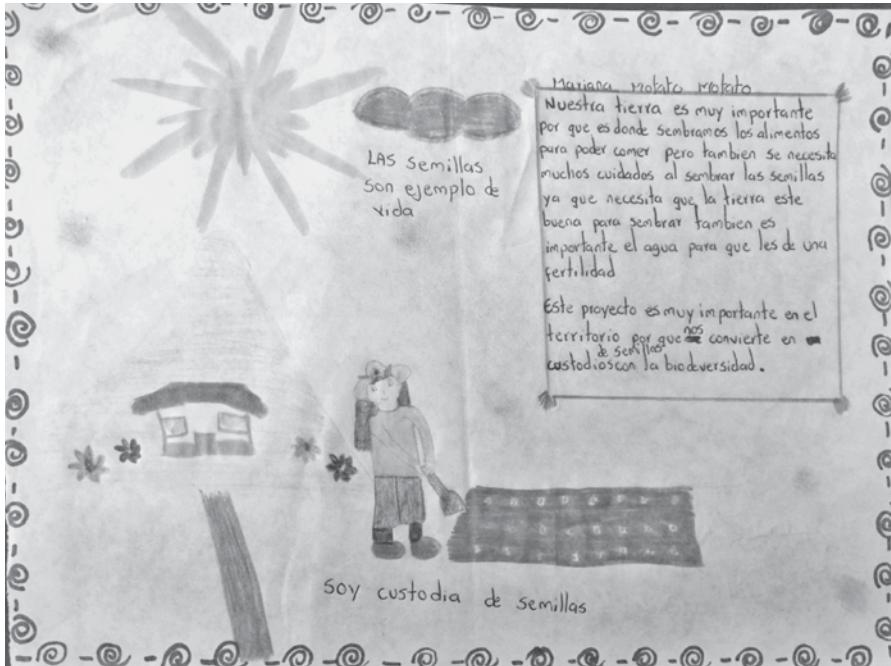 LAS semillas
son ejemplo de
vida
Mariana Motato Motato
Nuestra tierra es muy importante
por que es donde sembramos los alimentos
para poder comer pero tambien se necesita
muchos cuidados al sembrar las semillas
ya que necesita que la tierra este
buena para sembrar tambien es
importante el agua para que les de una
fertilidad
Este proyecto es muy importante en el
territorio por que nos convierte en
custodios de semillas con la biodeversidad.
Soy custodia de semillas